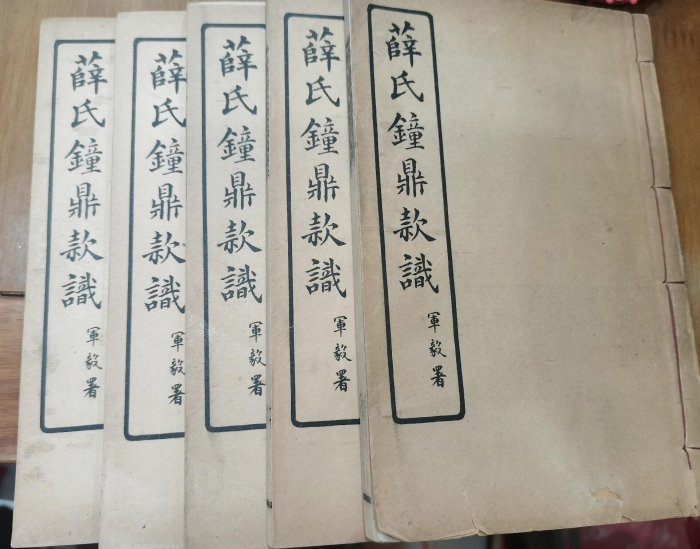 薛氏鐘鼎款識
軍毅署
薛氏鐘鼎款識
軍毅署
薛氏鐘鼎款識
軍毅署
薛氏鐘鼎款識
軍毅署
薛氏鐘鼎款識
軍毅署